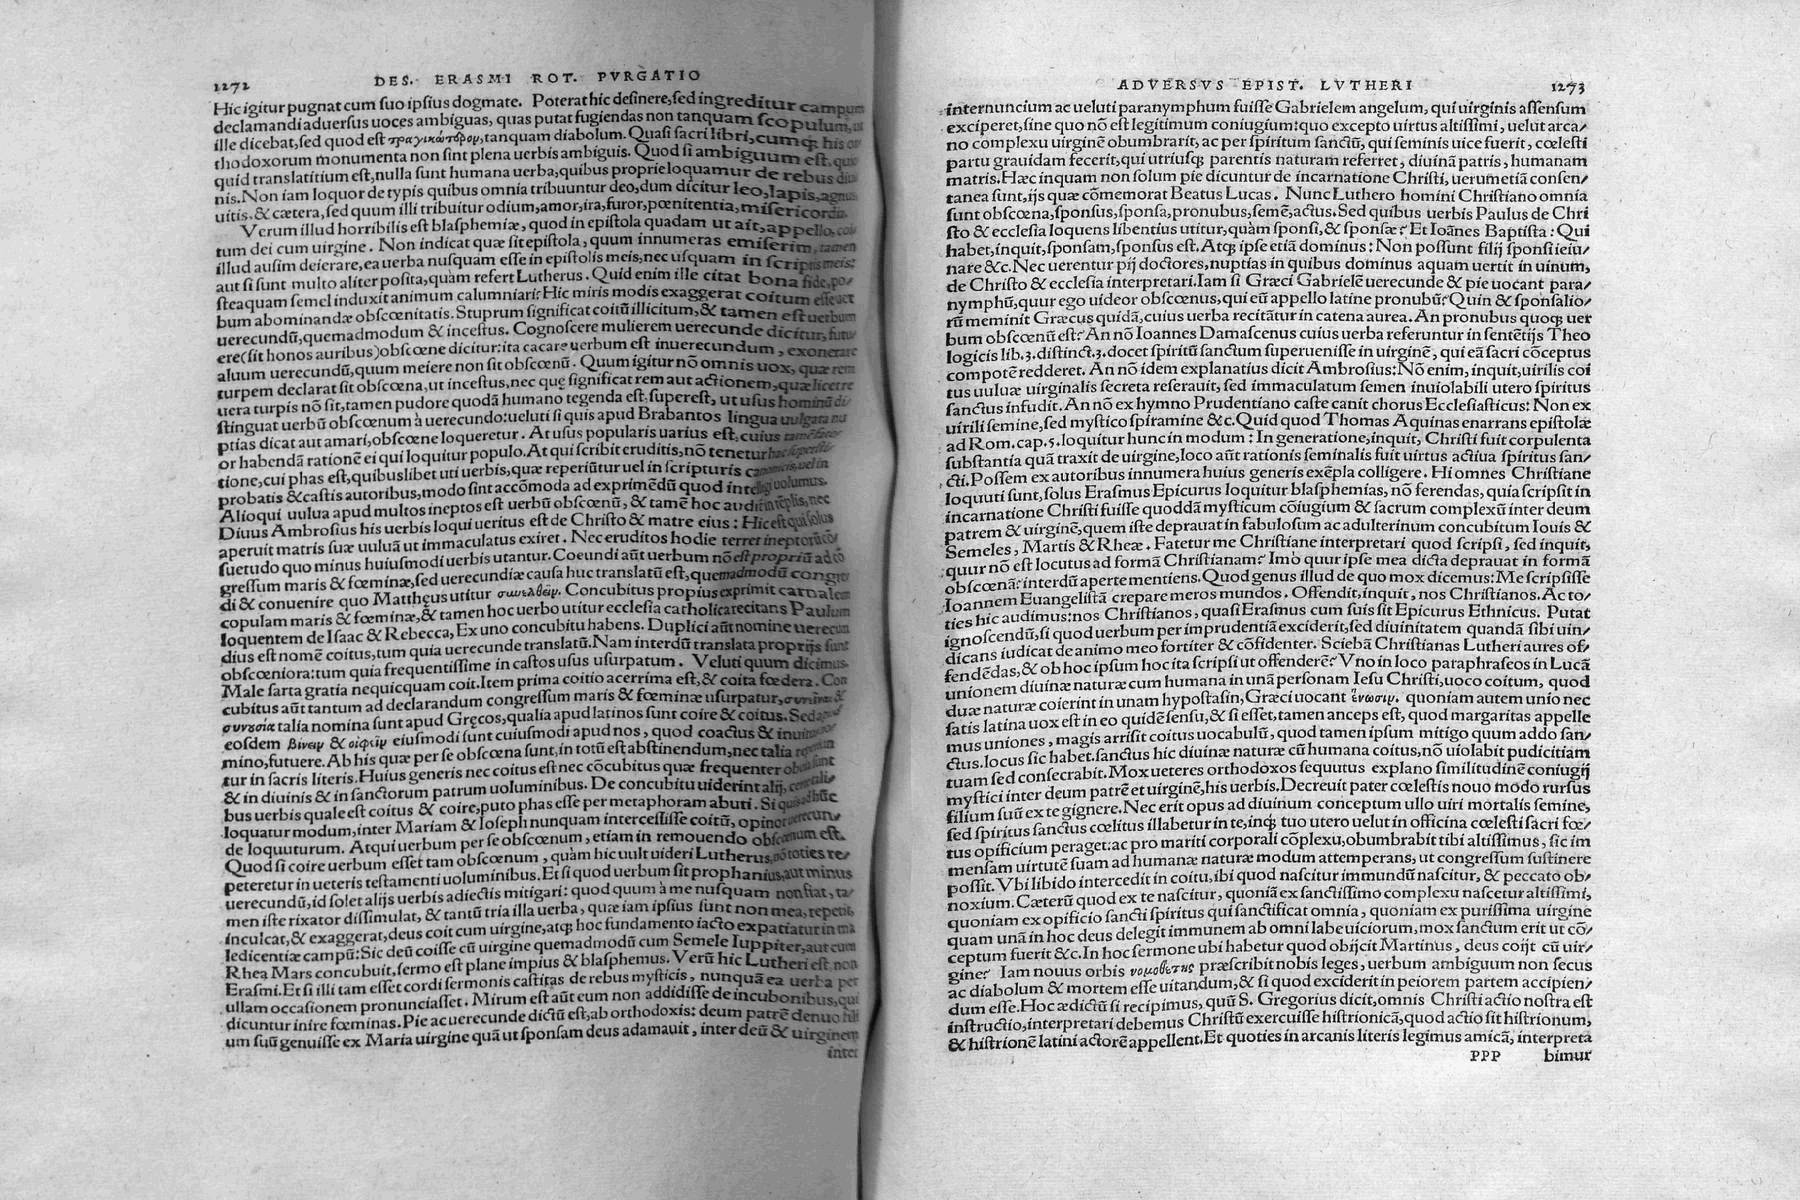 1272 DES. ERASMI ROT. PVRGATIO
Hic igitur pugnat cum suo ipsius dogmate. Poterat hic desinere, sed ingreditur campum
declamandi aduersus uoces ambiguas, quas putat fugiendas non tanquam scopulum, ut
ille dicebat, sed quod est τραγικώτερον, tanquam diabolum. Quasi sacri libri, cumq; his or
thodoxorum monumenta non sint plena uerbis ambiguis. Quod si ambiguum est, quic
quid translatitium est, nulla sunt humana uerba, quibus proprie loquamur de rebus diui
nis. Non iam loquor de typis quibus omnia tribuuntur deo, dum dicitur leo, lapis, agnus
uitis. & cætera, sed quum illi tribuitur odium, amor, ira, furor, pœnitentia, misericordia.
Verum illud horribilis est blasphemiæ, quod in epistola quadam ut ait, appello, coi
tum dei cum uirgine. Non indicat quæ sit epistola, quum innumeras emiserim, tamen
illud ausim deierare, ea uerba nusquam esse in epistolis meis, nec usquam in scriptis meis:
aut si sunt multo aliter posita, quàm refert Lutherus. Quid enim ille citat bona fide, po/
stea quam semel induxit animum calumniari? Hic miris modis exaggerat coitum esse uer
bum abominandæ obscœnitatis. Stuprum significat coitũ illicitum, & tamen est uerbum
uerecundũ, quemadmodum & incestus. Cognoscere mulierem uerecunde dicitur, futu
ere (sit honos auribus) obscœne dicitur: ita cacare uerbum est inuerecundum, exonerare
aluum uerecundũ, quum meiere non sit obscœnũ. Quum igitur nõ omnis uox, quæ rem
turpem declarat sit obscœna, ut incestus, nec quę significat rem aut actionem, quæ licet re
uera turpis nõ sit, tamen pudore quodã humano tegenda est, superest, ut usus hominũ di/
stinguat uerbũ obscœnum à uerecundo: ueluti si quis apud Brabantos lingua uulgata nu
ptias dicat aut amari, obscœne loqueretur. At usus popularis uarius est, cuius tamẽ
or habendã rationẽ ei qui loquitur populo. At qui scribit eruditis, nõ tenetur hac
tione, cui phas est, quibuslibet uti uerbis, quæ reperiũtur uel in scripturis canonicis, uel in
probatis & castis autoribus, modo sint accõmoda ad exprimẽdũ quod intelligi uolumus.
Alioqui uulua apud multos ineptos est uerbũ obscœnũ, & tamẽ hoc auditur in tẽplis, nec
Diuus Ambrosius his uerbis loqui ueritus est de Christo & matre eius: Hic est qui solus
aperuit matris suæ uuluã ut immaculatus exiret. Nec eruditos hodie terret ineptorũ cõ/
suetudo quo minus huiusmodi uerbis utantur. Coeundi aũt uerbum nõ est propriũ ad cõ
gressum maris & fœminæ, sed uerecundiæ causa huc translatũ est, quemadmodũ congre
di & conuenire quo Matthęus utitur συνελθεῖν. Concubitus propius exprimit carnalem
copulam maris & fœminæ, & tamen hoc uerbo utitur ecclesia catholica recitans Paulum
loquentem de Isaac & Rebecca, Ex uno concubitu habens. Duplici aũt nomine uerecun
dius est nomẽ coitus, tum quia uerecunde translatũ. Nam interdũ translata proprijs sunt
obscœniora: tum quia frequentissime in castos usus usurpatum. Veluti quum dicimus.
Male sarta gratia nequicquam coit. Item prima coitio acerrima est, & coita fœdera. Con
cubitus aũt tantum ad declarandum congressum maris & fœminæ usurpatur, &
συνουσία talia nomina sunt apud Gręcos, qualia apud latinos sunt coire & coitus. Sed apud
eosdem βίνειν & οἰφεῖν eiusmodi sunt cuiusmodi apud nos, quod coactus & inuitus
mino, futuere. Ab his quæ per se obscœna sunt, in totũ est abstinendum, nec talia
tur in sacris literis. Huius generis nec coitus est nec cõcubitus quæ frequenter sunt
& in diuinis & in sanctorum patrum uoluminibus. De concubitu uiderint alij,
bus uerbis quale est coitus & coire, puto phas esse per metaphoram abuti. Si quis adhũc
loquatur modum, inter Mariam & Ioseph nunquam intercessisse coitũ, opinor uerecun/
de loquuturum. Atqui uerbum per se obscœnum, etiam in remouendo obscœnum est.
Quod si coire uerbum esset tam obscœnum, quàm hic uult uideri Lutherus, nõ toties re/
peteretur in ueteris testamenti uoluminibus. Et si quod uerbum sit prophanius, aut minus
uerecundũ, id solet alijs uerbis adiectis mitigari: quod quum à me nusquam non fiat, ta/
men iste rixator dissimulat, & tantũ tria illa uerba, quæ iam ipsius sunt non mea, repetit,
inculcat, & exaggerat, deus coit cum uirgine, atq; hoc fundamento iacto expatiatur in ma
ledicentiæ campũ: Sic deũ coisse cũ uirgine quemadmodũ cum Semele Iuppiter, aut cum
Rhea Mars concubuit, sermo est plane impius & blasphemus. Verũ hic Lutheri est non
Erasmi. Et si illi tam esset cordi sermonis castitas de rebus mysticis, nunquã ea uerba per
ullam occasionem pronunciasset. Mirum est aũt eum non addidisse de incubonibus, qui
dicuntur inire fœminas. Pie ac uerecunde dictũ est, ab orthodoxis: deum patrẽ denuo fili
um suũ genuisse ex Maria uirgine quã ut sponsam deus adamauit, inter deũ & uirginem
inter
ADVERSVS EPIST. LVTHERI 1273
internuncium ac ueluti paranymphum fuisse Gabrielem angelum, qui uirginis assensum
exciperet, sine quo nõ est legitimum coniugium: quo excepto uirtus altissimi, uelut arca/
no complexu uirginẽ obumbrarit, ac per spiritum sanctũ, qui seminis uice fuerit, cœlesti
partu grauidam fecerit, qui utriusq; parentis naturam referret, diuinã patris, humanam
matris. Hæc inquam non solum pie dicuntur de incarnatione Christi, uerumetiã consen/
tanea sunt, ijs quæ cõmemorat Beatus Lucas. Nunc Luthero homini Christiano omnia
sunt obscœna, sponsus, sponsa, pronubus, semẽ, actus. Sed quibus uerbis Paulus de Chri
sto & ecclesia loquens libentius utitur, quàm sponsi, & sponsæ? Et Ioãnes Baptista: Qui
habet, inquit, sponsam, sponsus est. Atq; ipse etiã dominus: Non possunt filij sponsi ieiu/
nare &c. Nec uerentur pij doctores, nuptias in quibus dominus aquam uertit in uinum,
de Christo & ecclesia interpretari. Iam si Græci Gabrielẽ uerecunde & pie uocant para/
nymphũ, quur ego uideor obscœnus, qui eũ appello latine pronubũ? Quin & sponsalio/
rũ meminit Græcus quidã, cuius uerba recitãtur in catena aurea. An pronubus quoq; uer
bum obscœnũ est? An nõ Ioannes Damascenus cuius uerba referuntur in sentẽtijs Theo
logicis lib. 3. distinct. 3. docet spiritũ sanctum superuenisse in uirginẽ, qui eã sacri cõceptus
compotẽ redderet. An nõ idem explanatius dicit Ambrosius: Nõ enim, inquit, uirilis coi
tus uuluæ uirginalis secreta reserauit, sed immaculatum semen inuiolabili utero spiritus
sanctus infudit. An nõ ex hymno Prudentiano caste canit chorus Ecclesiasticus: Non ex
uirili semine, sed mystico spiramine &c. Quid quod Thomas Aquinas enarrans epistolæ
ad Rom. cap. 5. loquitur hunc in modum: In generatione, inquit, Christi fuit corpulenta
substantia quã traxit de uirgine, loco aũt rationis seminalis fuit uirtus actiua spiritus san/
cti. Possem ex autoribus innumera huius generis exẽpla colligere. Hi omnes Christiane
loquuti sunt, solus Erasmus Epicurus loquitur blasphemias, nõ ferendas, quia scripsit in
incarnatione Christi fuisse quoddã mysticum cõiugium & sacrum complexũ inter deum
patrem & uirginẽ, quem iste deprauat in fabulosum ac adulterinum concubitum Iouis &
Semeles, Martis & Rheæ. Fatetur me Christiane interpretari quod scripsi, sed inquit,
quur nõ est locutus ad formã Christianam? Imò quur ipse mea dicta deprauat in formã
obscœnã? interdũ aperte mentiens. Quod genus illud de quo mox dicemus: Me scripsisse
Ioannem Euangelistã crepare meros mundos. Offendit, inquit, nos Christianos. Ac to/
ties hic audimus: nos Christianos, quasi Erasmus cum suis sit Epicurus Ethnicus. Putat
ignoscendũ, si quod uerbum per imprudentiã exciderit, sed diuinitatem quandã sibi uin/
dicans iudicat de animo meo fortiter & cõfidenter. Sciebã Christianas Lutheri aures of/
fendẽdas, & ob hoc ipsum hoc ita scripsi ut offenderẽ? Vno in loco paraphraseos in Lucã
unionem diuinæ naturæ cum humana in unã personam Iesu Christi, uoco coitum, quod
duæ naturæ coierint in unam hypostasin, Græci uocant ἕνωσιν. quoniam autem unio nec
satis latina uox est in eo quidẽ sensu, & si esset, tamen anceps est, quod margaritas appelle
mus uniones, magis arrisit coitus uocabulũ, quod tamen ipsum mitigo quum addo san/
ctus. locus sic habet. sanctus hic diuinæ naturæ cũ humana coitus, nõ uiolabit pudicitiam
tuam sed consecrabit. Mox ueteres orthodoxos sequutus explano similitudinẽ coniugij
mystici inter deum patrẽ et uirginẽ, his uerbis. Decreuit pater cœlestis nouo modo rursus
filium suũ ex te gignere. Nec erit opus ad diuinum conceptum ullo uiri mortalis semine,
sed spiritus sanctus cœlitus illabetur in te, inq; tuo utero uelut in officina cœlesti sacri fœ/
tus opificium peraget: ac pro mariti corporali cõplexu, obumbrabit tibi altissimus, sic im
mensam uirtutẽ suam ad humanæ naturæ modum attemperans, ut congressum sustinere
possit. Vbi libido intercedit in coitu, ibi quod nascitur immundũ nascitur, & peccato ob/
noxium. Cæterũ quod ex te nascitur, quoniã ex sanctissimo complexu nascetur altissimi,
quoniam ex opificio sancti spiritus qui sanctificat omnia, quoniam ex purissima uirgine
quam unã in hoc deus delegit immunem ab omni labe uiciorum, mox sanctum erit ut cõ/
ceptum fuerit &c. In hoc sermone ubi habetur quod obijcit Martinus, deus coijt cũ uir/
gine? Iam nouus orbis νομοθέτης præscribit nobis leges, uerbum ambiguum non secus
ac diabolum & mortem esse uitandum, & si quod exciderit in peiorem partem accipien/
dum esse. Hoc ædictũ si recipimus, quũ S. Gregorius dicit, omnis Christi actio nostra est
instructio, interpretari debemus Christũ exercuisse histrionicã, quod actio sit histrionum,
& histrionẽ latini actorẽ appellent. Et quoties in arcanis literis legimus amicã, interpreta
PPP bimur